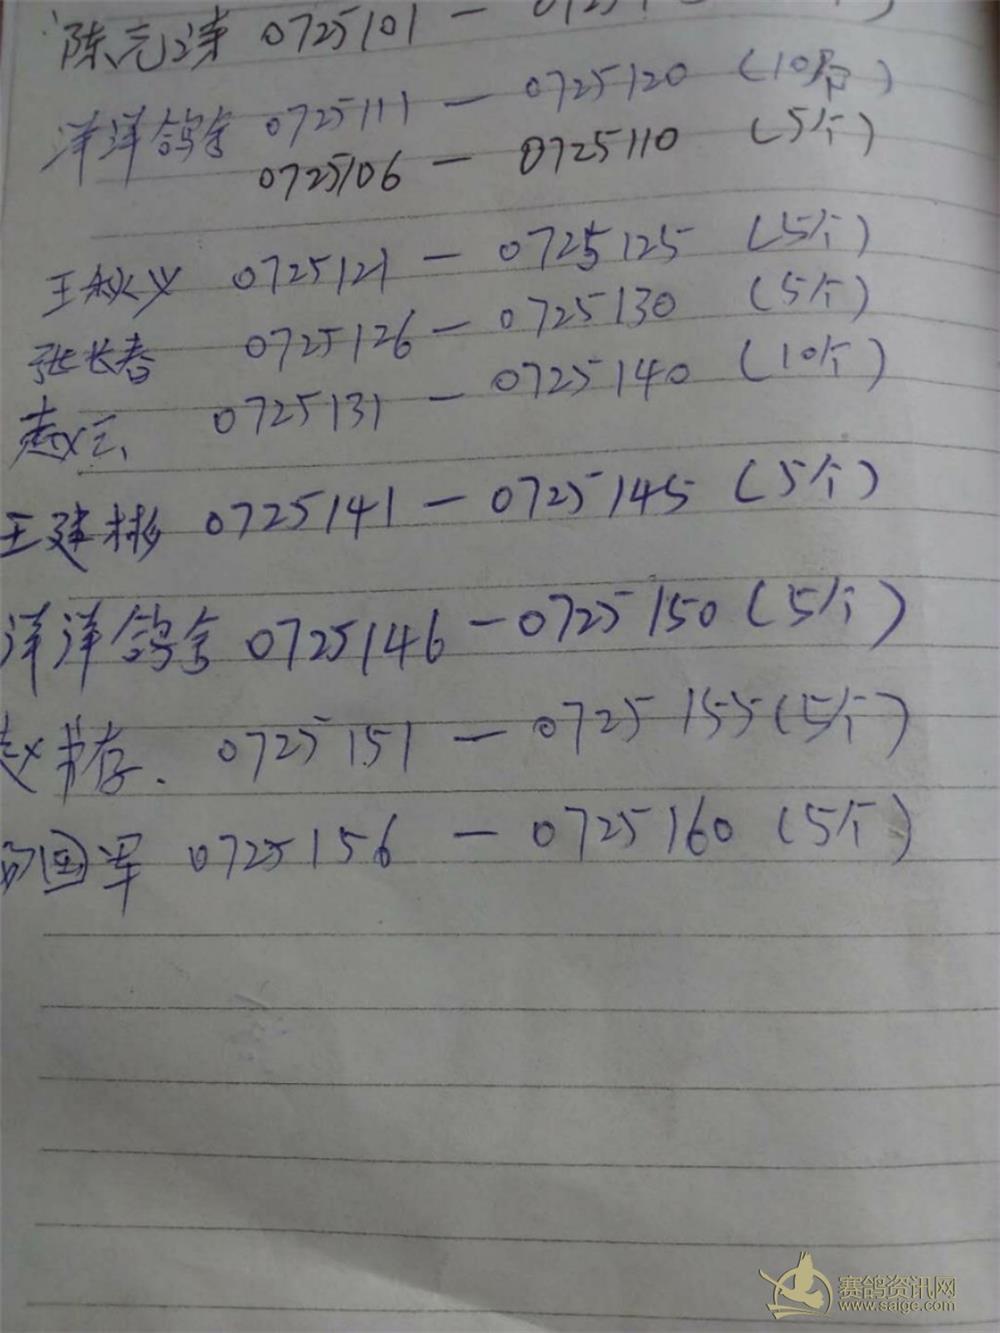 陈元涛 0725101 —
洋洋鸽舍 0725111 — 0725120 (10个)
0725106 — 0725110 (5个)
王秋义 0725121 — 0725125 (5个)
张长春 0725126 — 0725130 (5个)
0725131 — 0725140 (10个)
王建彬 0725141 — 0725145 (5个)
洋洋鸽舍 0725146 — 0725150 (5个)
赵书存. 0725151 — 0725155 (5个)
国军 0725156 — 0725160 (5个)
赛鸽资讯网
www.saige.com